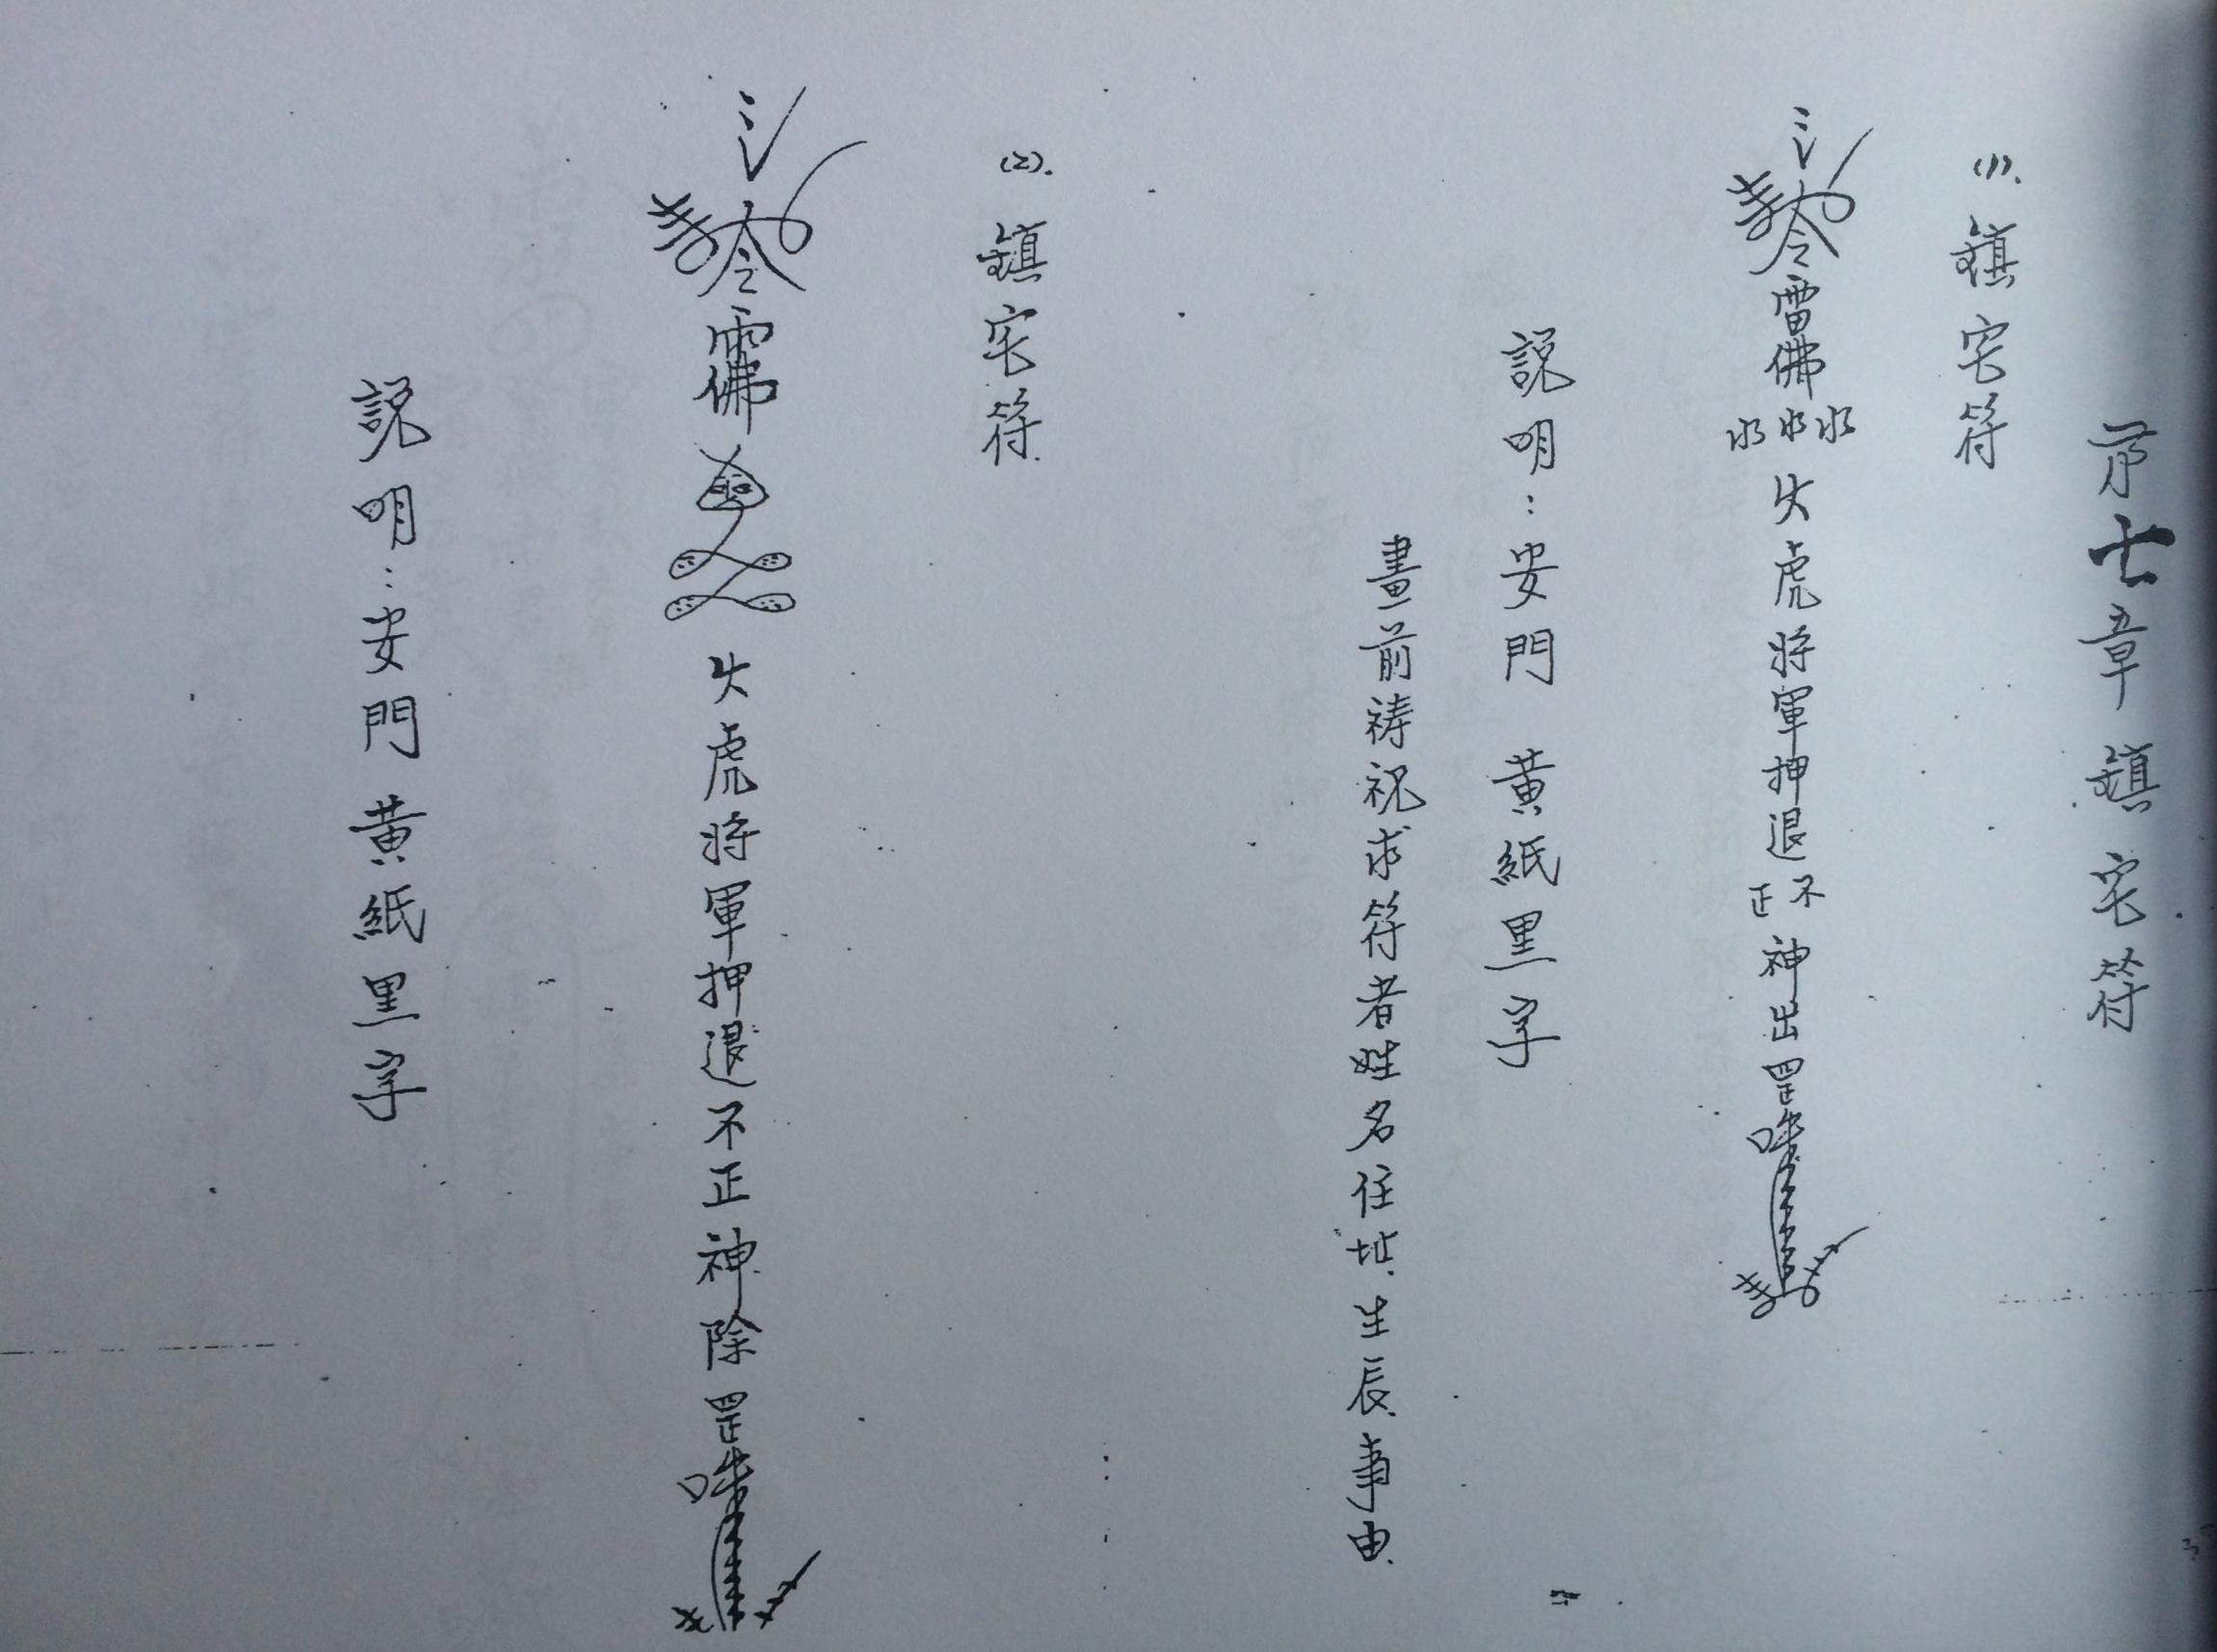 第七章鎮宅符
(1).鎮宅符
令雷佛水水水火虎將軍押退不正神出罡
説明:安門 黄紙黑字
畫前禱祝求符者姓名住址.生辰.事由.
(2).鎮宅符.
令佛火虎將軍押退不正神除罡
説明:安門黄紙黑字